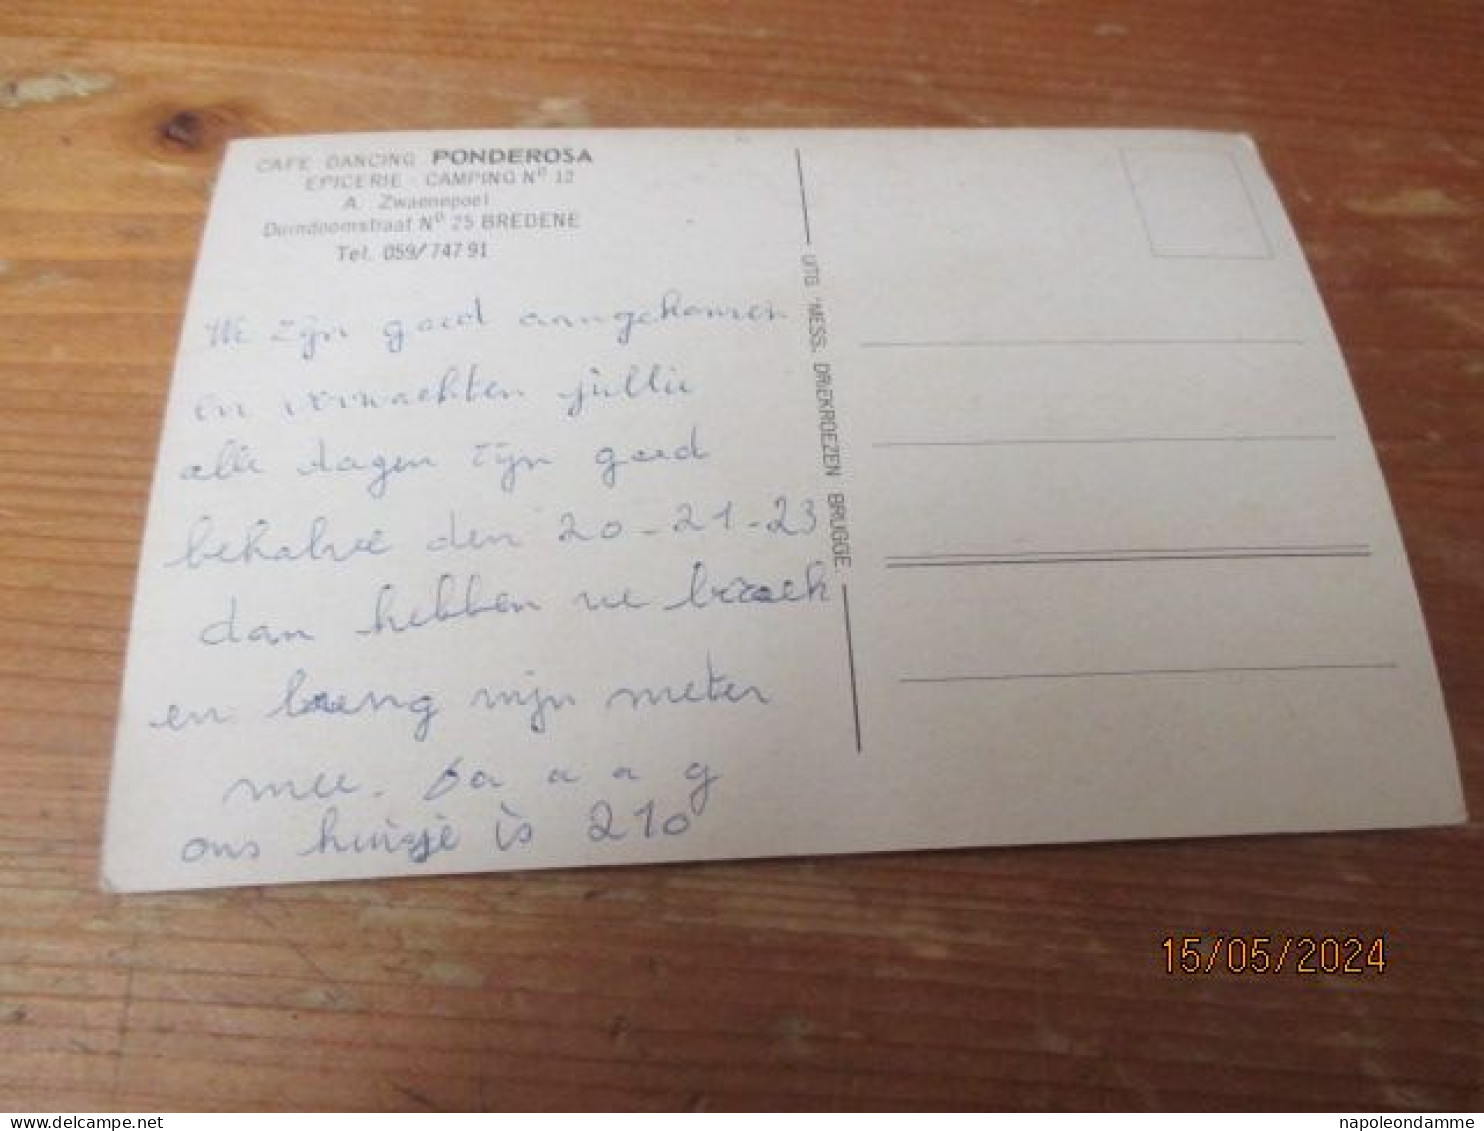 CAFE DANCING PONDEROSA
EPICERIE - CAMPING Nº 12
A. Zwaenepoel
Duindoornstraat Nº 25 BREDENE
Tel. 059/747 91
We zijn goed aangekomen
en verwachten jullie
alle dagen zijn goed
behalve den 20-21-23
dan hebben we bezoek
en breng mijn meter
mee. Da a a g
ons huisje is 210
UITG. "MESS. DRIEKROEZEN BRUGGE
15/05/2024
napoleondamme